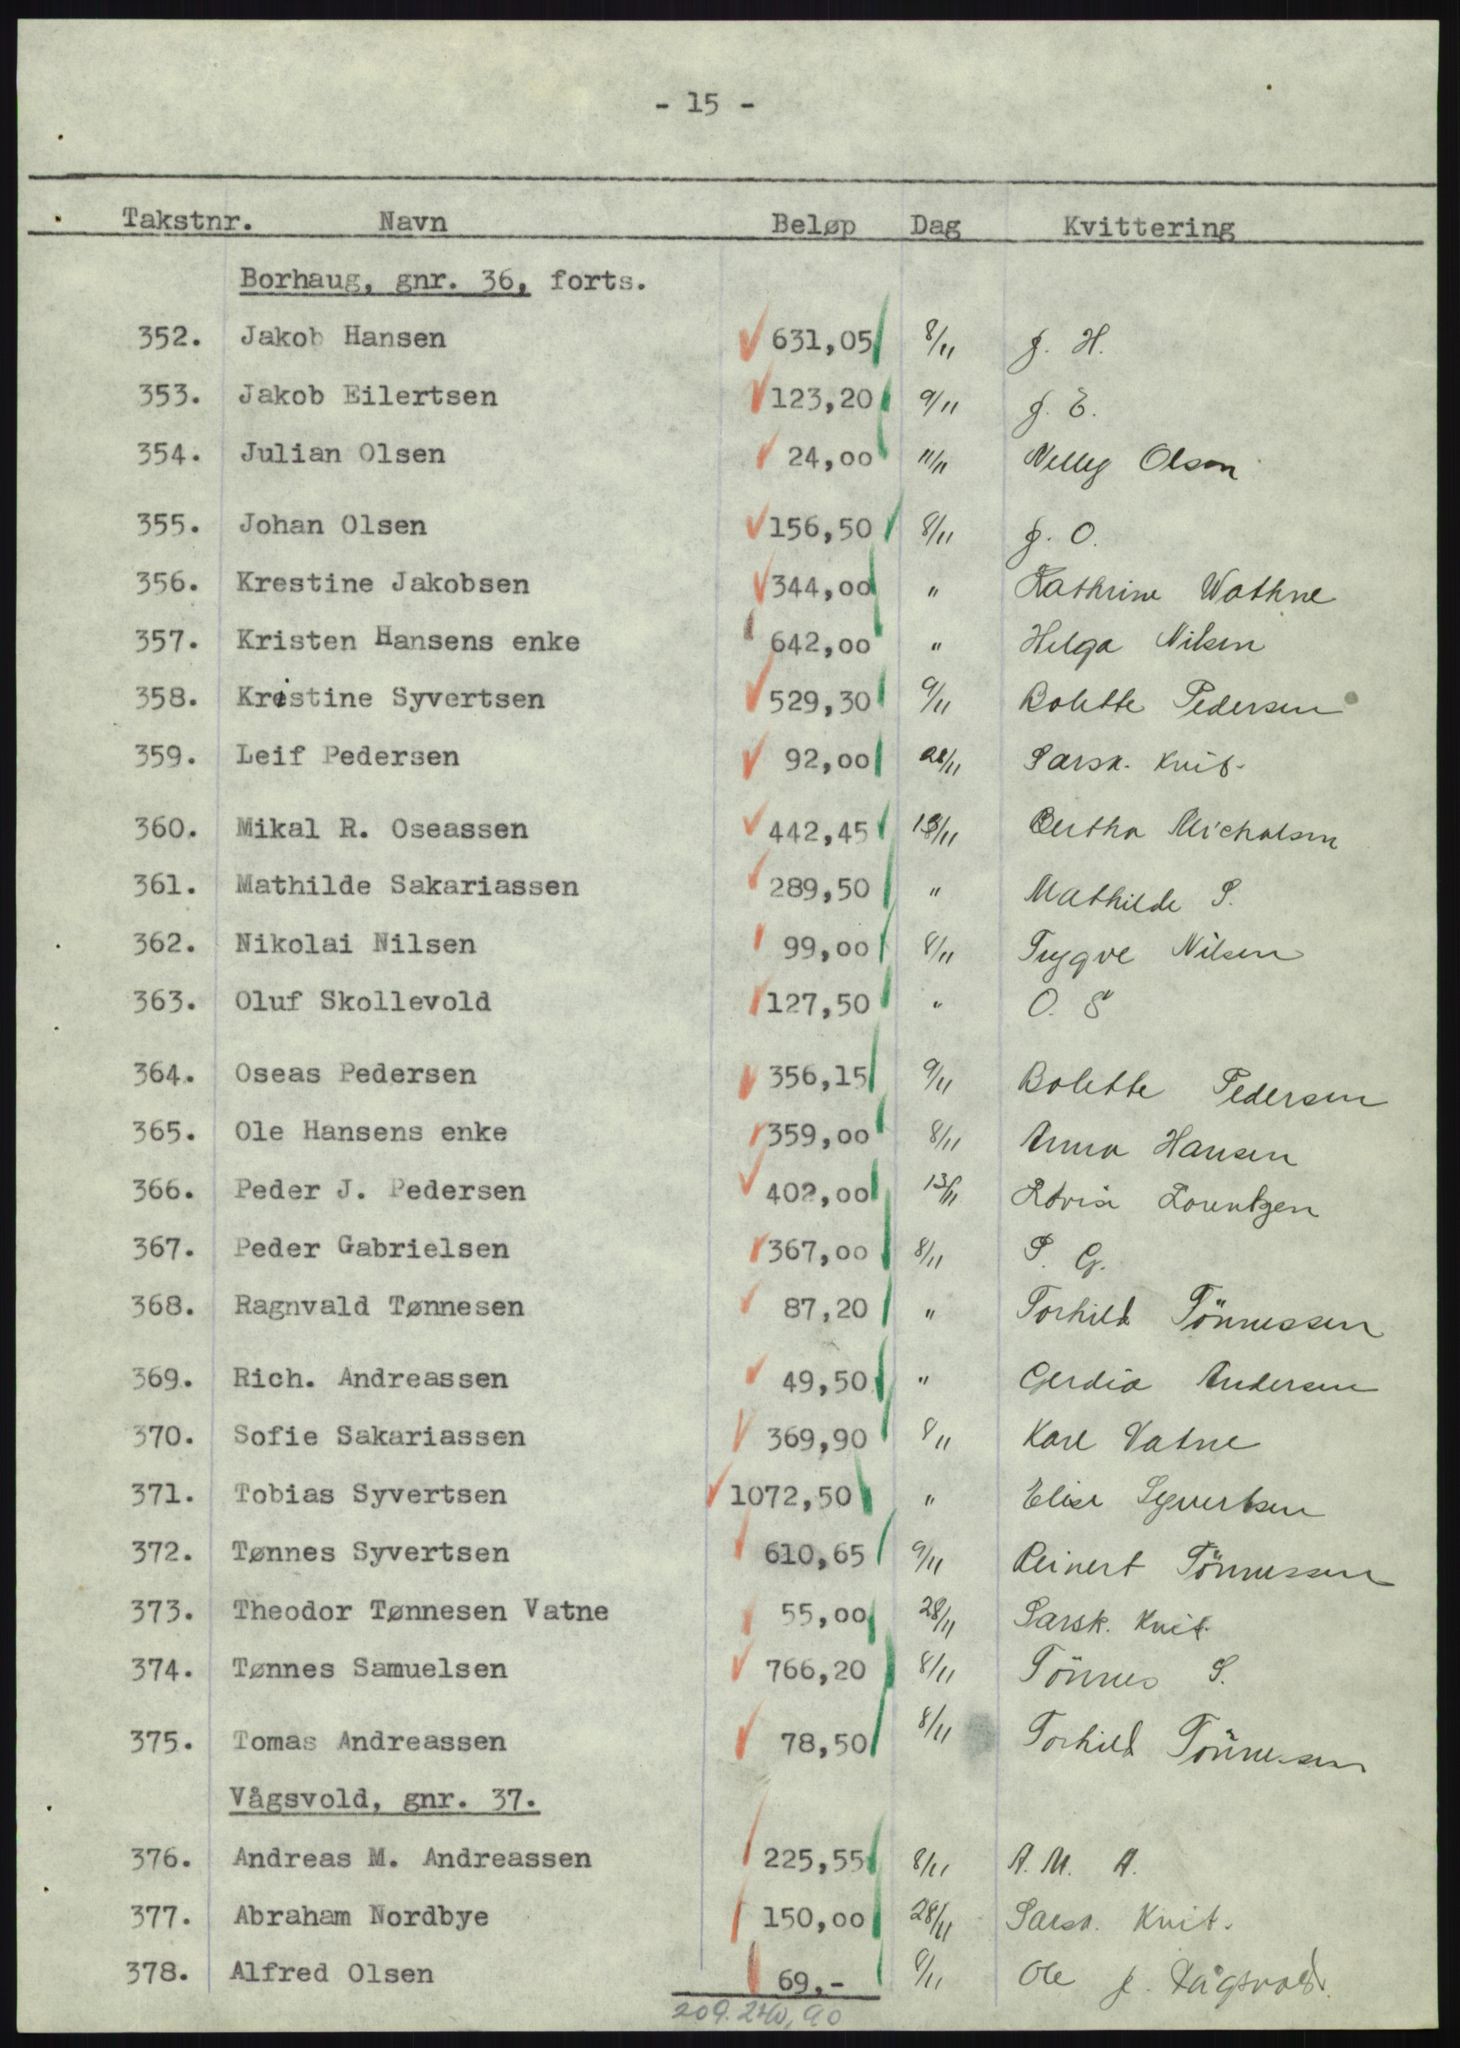 - 15 -
Takstnr. Navn Beløp Dag Kvittering
Borhaug, gnr. 36, forts.
352. Jakob Hansen 631,05 8/11 J. H.
353. Jakob Eilertsen 123,20 9/11 J. E.
354. Julian Olsen 24,00 11/11 Nelly Olsen
355. Johan Olsen 156,50 8/11 J. O.
356. Krestine Jakobsen 344,00 " Kathrine Wathne
357. Kristen Hansens enke 642,00 " Helga Nilsen
358. Kristine Syvertsen 529,30 9/11 Bolette Pedersen
359. Leif Pedersen 92,00 28/11 Særsk. Kvit.
360. Mikal R. Oseassen 442,45 13/11 Bertha Michalsen
361. Mathilde Sakariassen 289,50 " Mathilde S.
362. Nikolai Nilsen 99,00 8/11 Trygve Nilsen
363. Oluf Skollevold 127,50 " O. S
364. Oseas Pedersen 356,15 9/11 Bolette Pedersen
365. Ole Hansens enke 359,00 8/11 Anna Hansen
366. Peder J. Pedersen 402,00 13/11 Lovise Lorentzen
367. Peder Gabrielsen 367,00 8/11 P. G.
368. Ragnvald Tønnesen 87,20 " Torhild Tönnessen
369. Rich. Andreassen 49,50 " Gerdia Andersen
370. Sofie Sakariassen 369,90 8/11 Karl Vatne
371. Tobias Syvertsen 1072,50 " Elise Syvertsen
372. Tønnes Syvertsen 610,65 9/11 Reinert Tönnessen
373. Theodor Tønnesen Vatne 55,00 28/11 Særsk. Kvit.
374. Tønnes Samuelsen 766,20 8/11 Tönnes S.
375. Tomas Andreassen 78,50 8/11 Torhild Tönnesen
Vågsvold, gnr. 37.
376. Andreas M. Andreassen 225,55 8/11 A. M. A.
377. Abraham Nordbye 150,00 28/11 Særsk. Kvit.
378. Alfred Olsen 69.- 9/11 Ole J. Vågsvold.
209.240,90